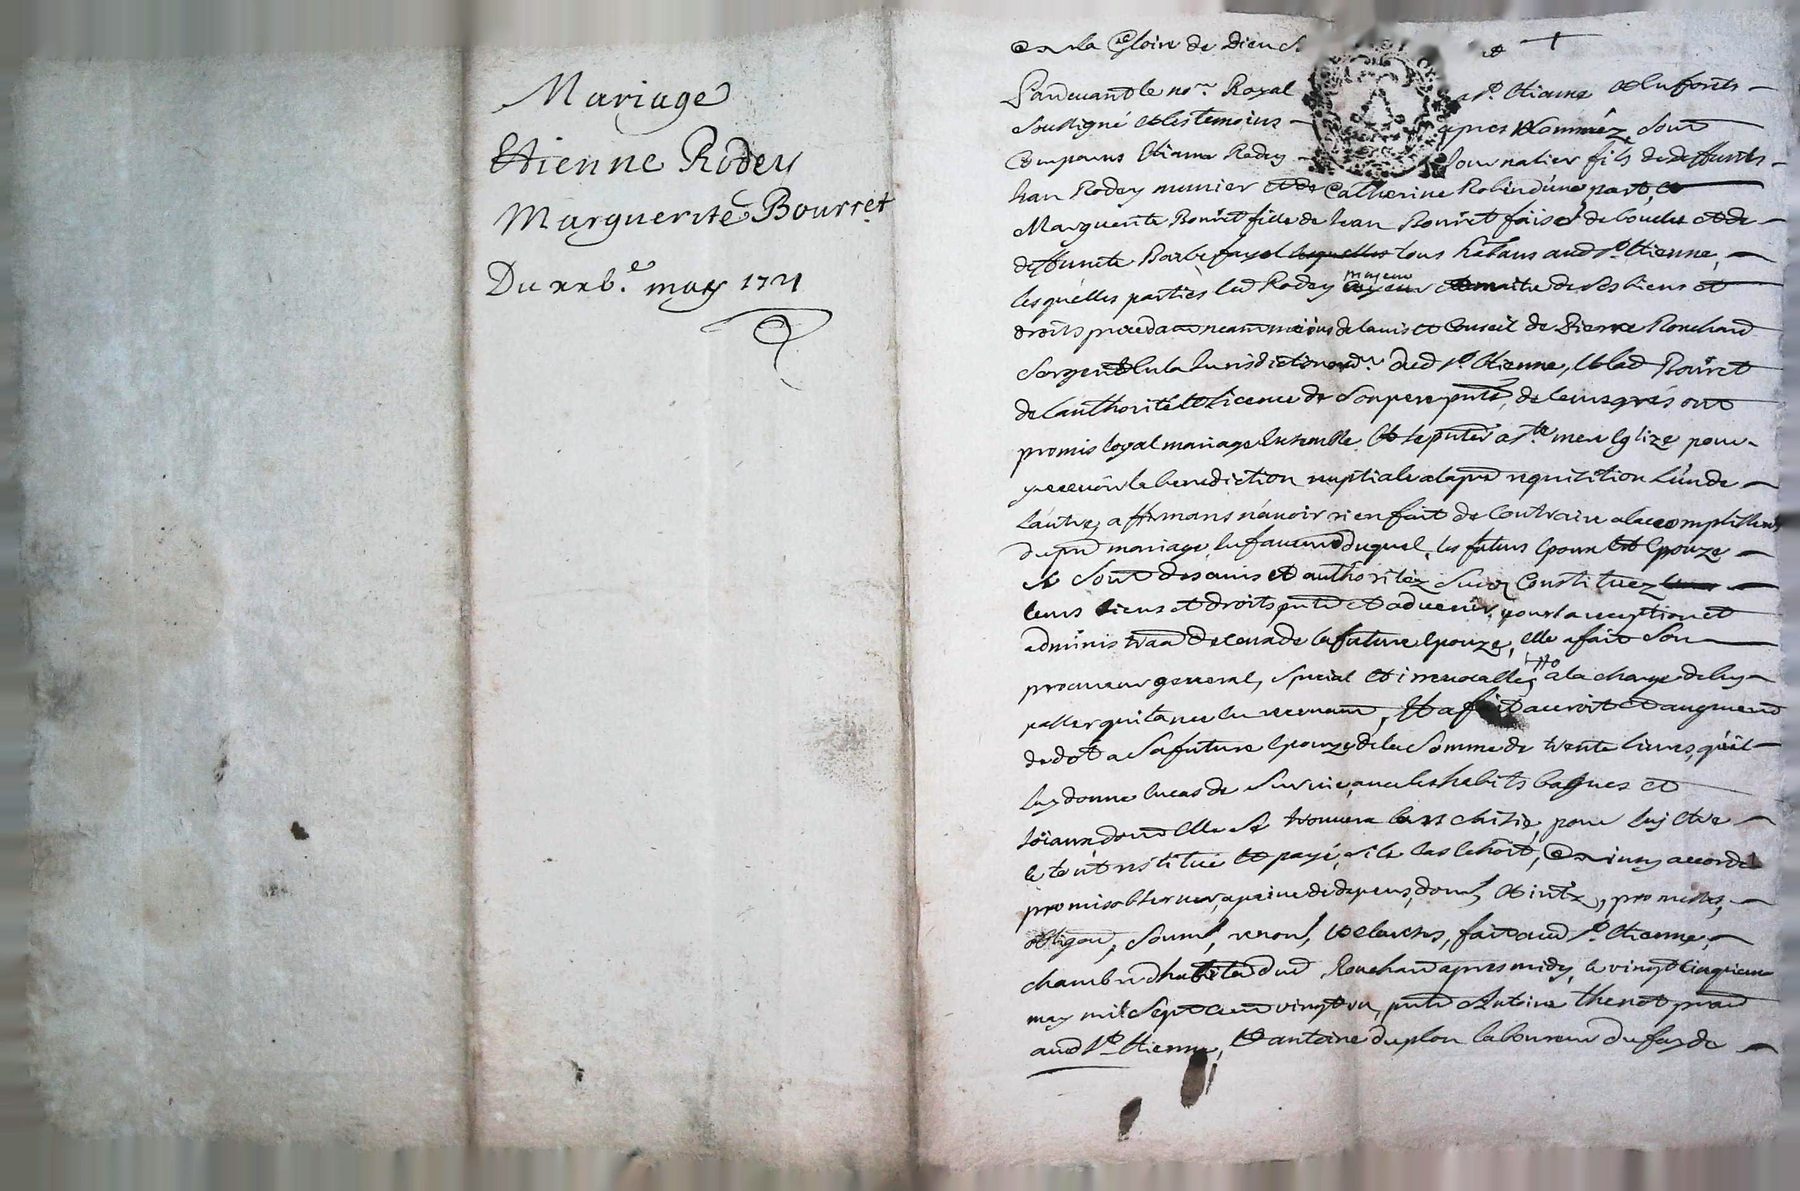 Mariage
Etienne Rodey
Marguerite Bourret
Du xxb.e may 1721
En la Gloire de Dieu
Pardevant le nore Royal a St. Etienne en forests
Soussigné et les temoins apres Nommez sont
Comparus Etiame Rodey Journalier fils de deffunts
Jean Rodey munier et de Catherine Robin d'une part, et
Marguerite Bouret fille de Jean Bouret et de
deffuncte Barbe fayol tous habans aud St. Etienne,
lesquelles parties led Rodey majeur et maitre de ses biens et
droits procedant neanmoins de lavis et Conseil de Pierre Rouchard
Sergent en la Jurisdiction ordre dud St. Etienne, et lad Bouret
de lauthorité et licence de Son pere pnt, de leurs grés ont
promis loyal mariage Ensemble Et se pnter a Ste mere Eglize pour
y recevoir la benediction nuptiale a la pre requisition l'un de
L'autre, affirmans n'avoir rien fait de Contraire a laccomplissemt
du pnt mariage, En faveur duquel, les futurs Epoux et Epouze
Se Sont de avis et authorité Susd Constituez
leurs biens et droits pnts et advenir, pour la reception et
administraon de ceux de la future Epouze, elle a fait Son
procureur general, special et irrevocable, a la charge de luy
passer quitance En recevant, Et a fait accroit et augment
de dot a Sa future Epouze de la Somme de trente livres, qu'il
luy donne En cas de Survie, avec les habits bagues et
Joiaux dont elle Se trouvera lors Saisie, pour luy etre
le tout restitué et payé, si le cas Echoit, Et ainsy accordé
promis observer, a peine de depens, dom, et intz, promesses,
obligaon, Soum, renon, et clauses, fait aud St. Etienne,
chambre d'habitaon dud Rouchard apres midy, le vingt cinquieme
may mil Sept cent vingt un, pnts Antoine thenot
aud St. Etienne, et antoine duplon laboureur du fay de